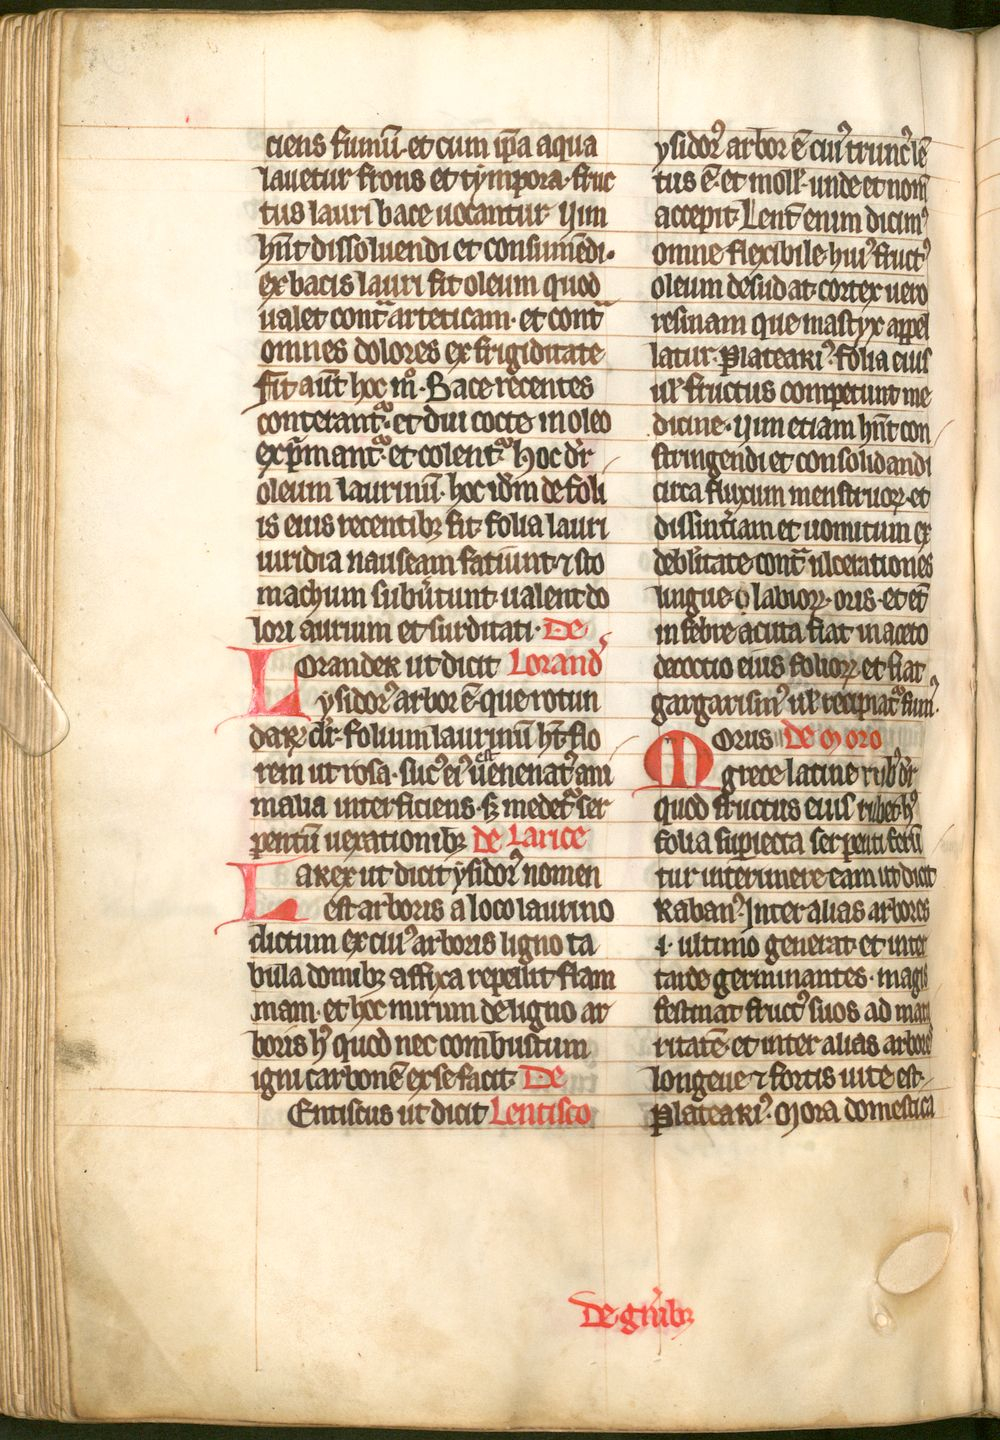 ciens fumū· et cum ip̄a aqua
lauetur frons et tympora· fruc
tus lauri bace uocantur· uim
hn̄t dissoluendi et consumēdi·
ex bacis lauri fit oleum quod
ualet cont̄ arteticam· et cont̄
omnes dolores ex frigiditate
fit aūt hoc mͦ· Bace recentes
conterant᷑· et diu cocte in oleo
exp̄mant᷑· et colent᷑ hoc dr̄
oleum laurinū· hoc idm̄ de foli
is eius recentibꝫ fit· folia lauri
uiridia nauseam fatiunt· ⁊ sto
machum subu̅tunt· ualent do
lori aurium et surditati· De
Lorander ut dicit Lorand̕
ysidorꝰ arbor ē· que rotun
daꝝ dr̄· folium laurinū ht̄ flo
rem ut rosa· sucꝰ eiꝰ uenenatꝰ est ani
malia interficiens· sꝫ medet᷑ ser
pentū uexationibꝫ de Larice
Larex ut dicit ysidorꝰ nomen
est arboris a loco laurino
dictum ex cuiꝰ arboris ligno ta
bula domibꝫ affixa repellit flam
mam· et hoc mirum de ligno ar
boris hꝰ quod nec combustum
igni carbonē ex se facit· De
Entiscus ut dicit Lentisco
ysidorꝰ arbor ē cuiꝰ truncꝰ lē
tus ē· et moll̕· unde et nom̄
accepit· Lent̄ enim dicimꝰ
omne flexibile· huiꝰ fructꝰ
oleum desudat· cortex uero
resinam que mastyx appel
latur· Plateariꝰ· folia eius
ul̕ fructus competunt me
dicine· uim etiam hn̄t con
stringendi et consolidandi
circa fluxum menstruoꝝ· et
dissint̄iam et uomitum ex
debilitate· cont̄ ulcerationes
lingue· labioꝝ· oris· et et̄
in febre acuta fiat in aceto
decoctio eius folioꝝ· et fiat
gargarismꝰ ul̕ recipiat᷑ fum̄·
Morus De Moro
grece latine rubꝰ dr̄
quod fructus eius rubet· hꝰ
folia supiecta serpenti ferū
tur interimere eam ut dicit
Rabanꝰ· Inter alias arbores
i· ultimo generat· et inter
tarde germinantes· magis
festinat fructꝰ suos ad matu
ritatē· et inter alias arbores
longeue ⁊ fortis uite est·
Plateariꝰ· Mora domestica
De gn̄ibꝫ